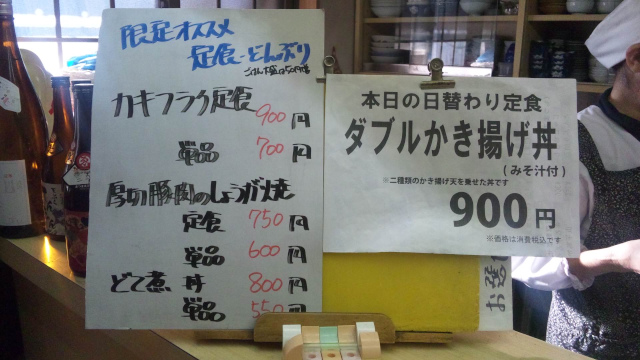 限定オススメ
定食・どんぶり
カキフライ定食 900円
単品 700円
厚切豚肉のしょうが焼
定食 750円
単品 600円
どて煮 丼 800円
単品 550円
本日の日替わり定食
ダブルかき揚げ丼
(みそ汁付)
※二種類のかき揚げ天を乗せた丼です
900円
※価格は消費税込です